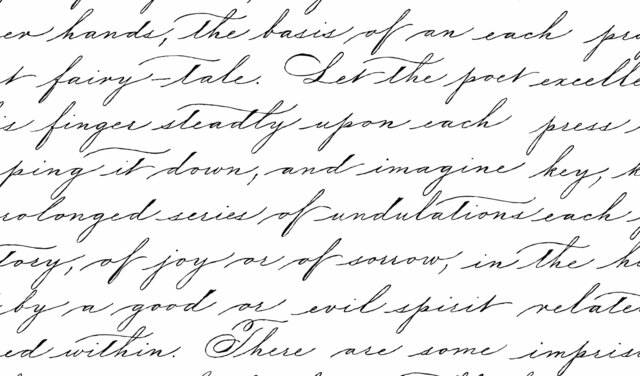 er hands, the basis of an each pro
t fairy-tale. Let the poet excelle
is finger steadly upon each press
ping it down, and imagine key, k
rolonged series of undulations each
tory, of joy or of sorrow, in the h
by a good or evil spirit relate
ed within. There are some impris